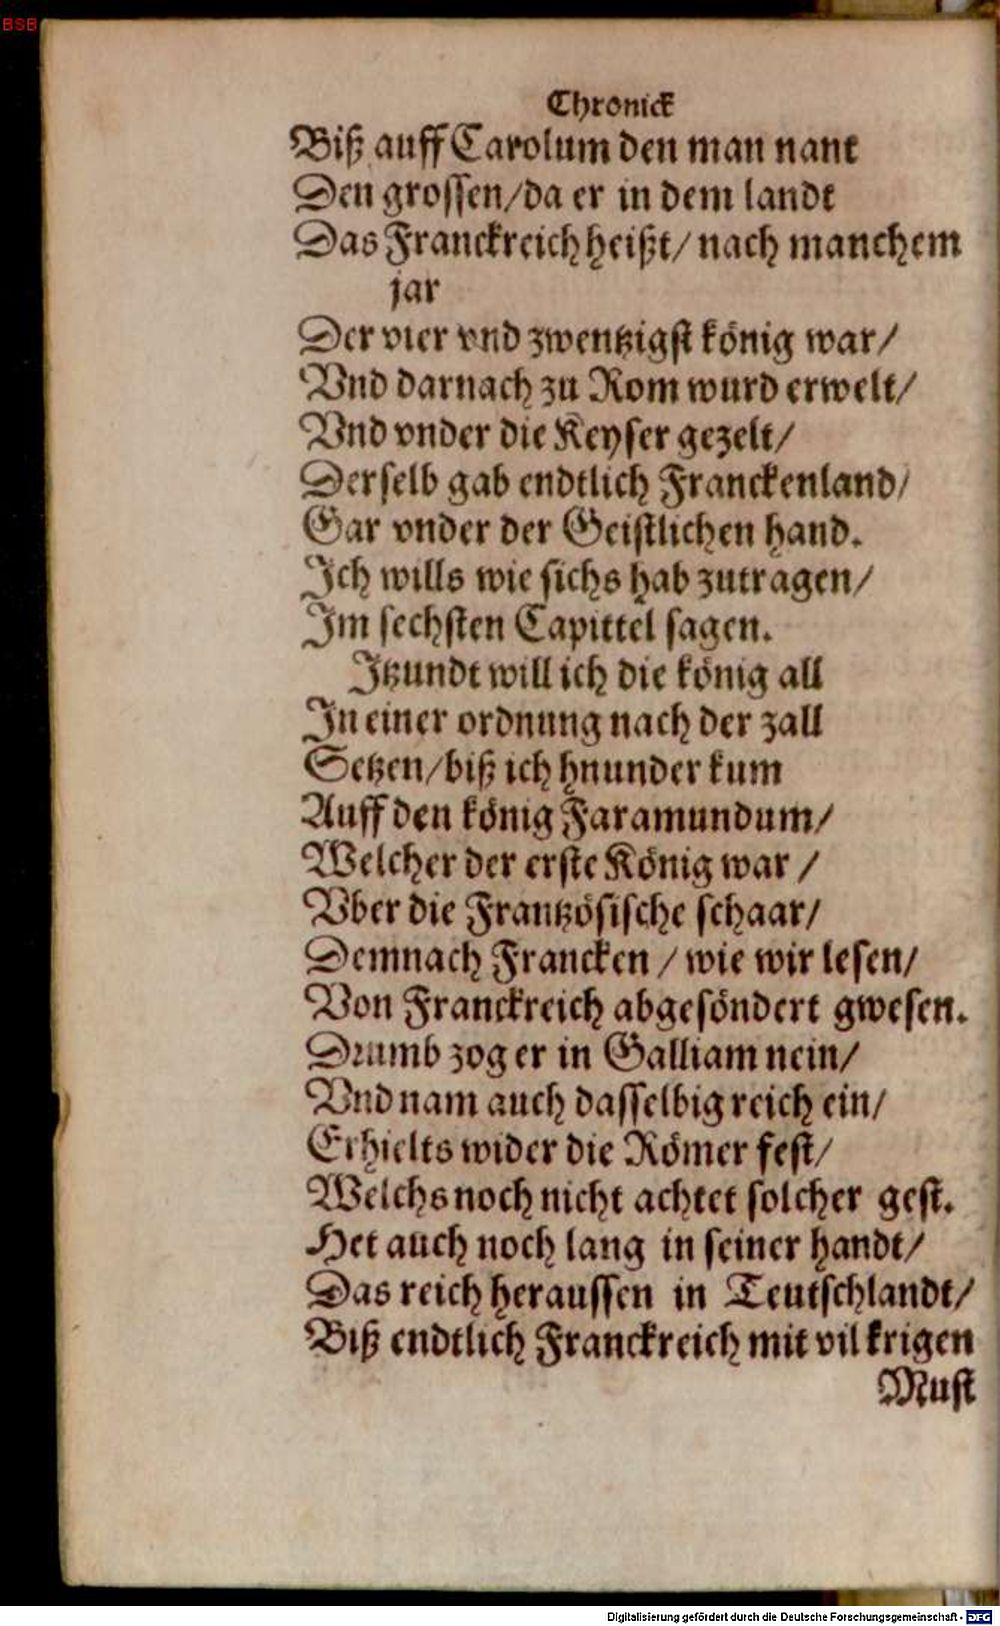 BSB
Chronick
Biß auff Carolum den man nant
Den grossen/da er in dem landt
Das Franckreich heißt/ nach manchem
jar
Der vier vnd zwentzigst könig war/
Vnd darnach zu Rom wurd erwelt/
Vnd vnder die Keyser gezelt/
Derselb gab endtlich Franckenland/
Gar vnder der Geistlichen hand.
Ich wills wie sichs hab zutragen/
Im sechsten Capittel sagen.
Itzundt will ich die könig all
In einer ordnung nach der zall
Setzen/biß ich hnunder kum
Auff den könig Faramundum/
Welcher der erste König war /
Vber die Frantzösische schaar/
Demnach Francken / wie wir lesen/
Von Franckreich abgesöndert gwesen.
Drumb zog er in Galliam nein/
Vnd nam auch dasselbig reich ein/
Erhielts wider die Römer fest/
Welchs noch nicht achtet solcher gest.
Het auch noch lang in seiner handt/
Das reich heraussen in Teutschlandt/
Biß endtlich Franckreich mit vil krigen
Must
Digitalisierung gefördert durch die Deutsche Forschungsgemeinschaft - DFG